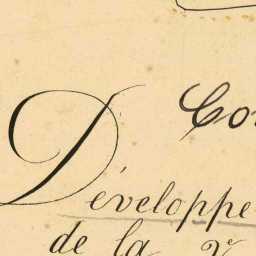 Co
Développe
de la